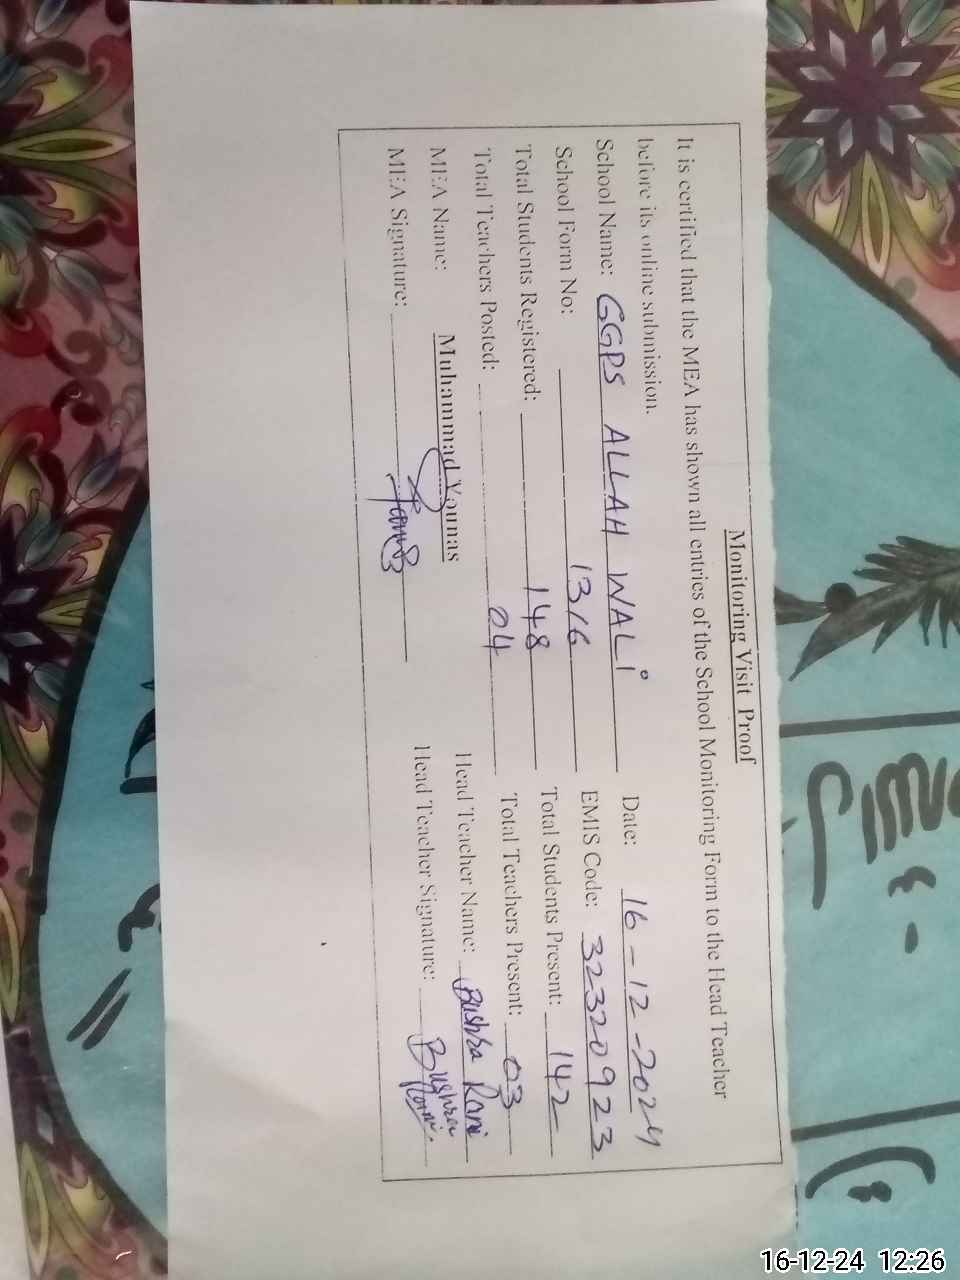 Monitoring Visit Proof
It is certified that the MEA has shown all entries of the School Monitoring Form to the Head Teacher
before its online submission.
School Name: GGPS ALLAH WALI Date: 16-12-2024
School Form No: 1316 EMIS Code: 32320923
Total Students Registered: 148 Total Students Present: 142
Total Teachers Posted: 04 Total Teachers Present: 03
MEA Name: Muhammad Younas Head Teacher Name: Bushra Rani
MEA Signature: Head Teacher Signature: Bushra Rani
16-12-24 12:26